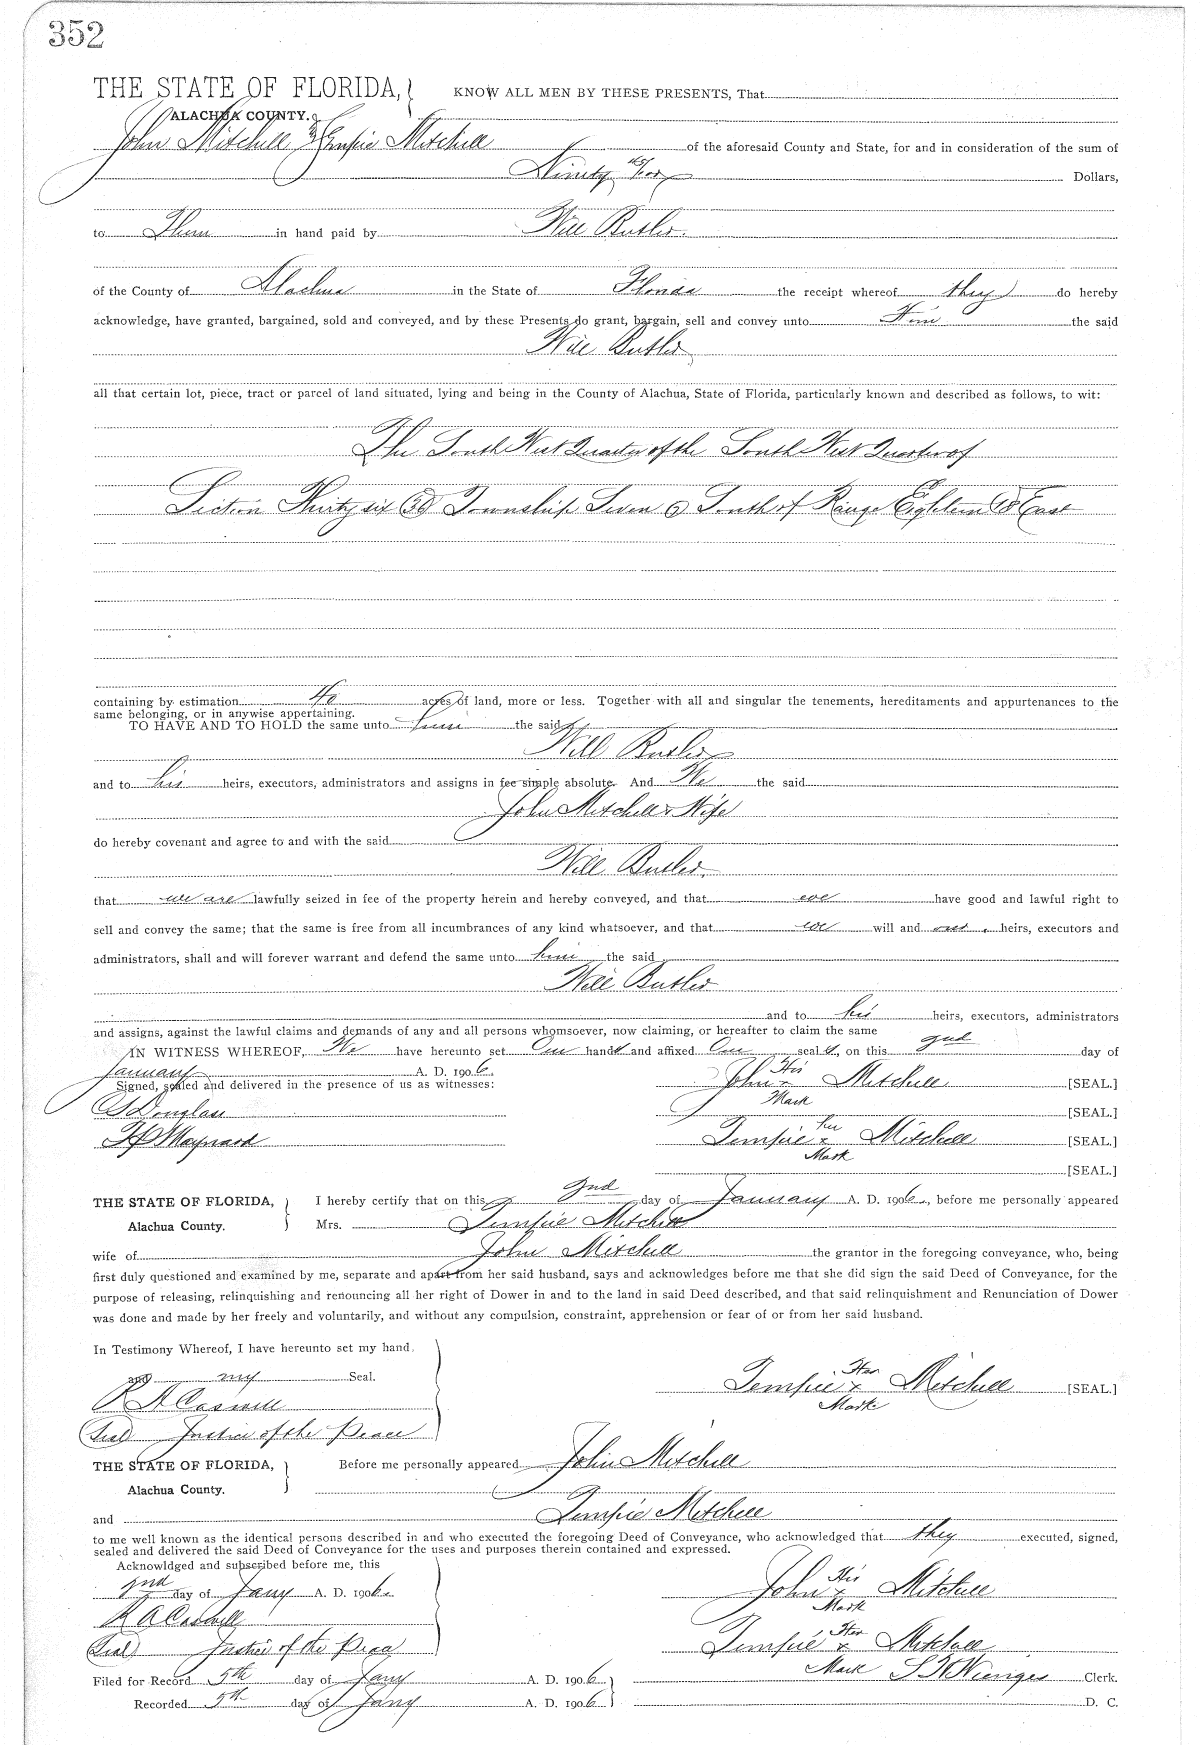 352
THE STATE OF FLORIDA, KNOW ALL MEN BY THESE PRESENTS, That
ALACHUA COUNTY.
John Mitchell & Tempie Mitchell of the aforesaid County and State, for and in consideration of the sum of
Ninety /100 Dollars,
to Them in hand paid by Will Butler
of the County of Alachua in the State of Florida the receipt whereof they do hereby
acknowledge, have granted, bargained, sold and conveyed, and by these Presents do grant, bargain, sell and convey unto Him the said
Will Butler
all that certain lot, piece, tract or parcel of land situated, lying and being in the County of Alachua, State of Florida, particularly known and described as follows, to wit:
The South West Quarter of the South West Quarter of
Section Thirty six (36) Township Seven (7) South of Range Eighteen (18) East
containing by estimation 40 acres of land, more or less. Together with all and singular the tenements, hereditaments and appurtenances to the
same belonging, or in anywise appertaining.
TO HAVE AND TO HOLD the same unto him the said
Will Butler
and to his heirs, executors, administrators and assigns in fee simple absolute. And We the said
John Mitchell & Wife
do hereby covenant and agree to and with the said
Will Butler
that we are lawfully seized in fee of the property herein and hereby conveyed, and that we have good and lawful right to
sell and convey the same; that the same is free from all incumbrances of any kind whatsoever, and that we will and our heirs, executors and
administrators, shall and will forever warrant and defend the same unto him the said
Will Butler
and to his heirs, executors, administrators
and assigns, against the lawful claims and demands of any and all persons whomsoever, now claiming, or hereafter to claim the same
IN WITNESS WHEREOF, We have hereunto set Our hands and affixed Our seals, on this 2nd day of
January A. D. 1906.
Signed, sealed and delivered in the presence of us as witnesses: John His x Mark Mitchell [SEAL.]
Douglass [SEAL.]
Maynard Tempie her x Mark Mitchell [SEAL.]
[SEAL.]
THE STATE OF FLORIDA, I hereby certify that on this 2nd day of January A. D. 1906, before me personally appeared
Alachua County. Mrs. Tempie Mitchell
wife of John Mitchell the grantor in the foregoing conveyance, who, being
first duly questioned and examined by me, separate and apart from her said husband, says and acknowledges before me that she did sign the said Deed of Conveyance, for the
purpose of releasing, relinquishing and renouncing all her right of Dower in and to the land in said Deed described, and that said relinquishment and Renunciation of Dower
was done and made by her freely and voluntarily, and without any compulsion, constraint, apprehension or fear of or from her said husband.
In Testimony Whereof, I have hereunto set my hand
and my Seal. Tempie Her x Mark Mitchell [SEAL.]
R A Caswell
(Seal) Justice of the Peace
THE STATE OF FLORIDA, Before me personally appeared John Mitchell
Alachua County.
and Tempie Mitchell
to me well known as the identical persons described in and who executed the foregoing Deed of Conveyance, who acknowledged that they executed, signed,
sealed and delivered the said Deed of Conveyance for the uses and purposes therein contained and expressed.
Acknowldged and subscribed before me, this
2nd day of Jany A. D. 1906. John His x Mark Mitchell
R A Caswell
(Seal) Justice of the Peace Tempie Her x Mark Mitchell
Filed for Record 5th day of Jany A. D. 1906 S H Wienges Clerk.
Recorded 5th day of Jany A. D. 1906 D. C.